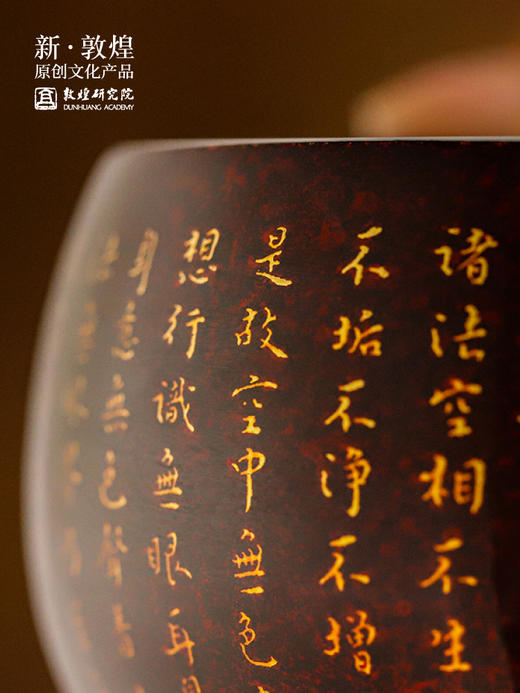 新·敦煌
原创文化产品
敦煌研究院
DUNHUANG ACADEMY
诸法空相不生
不垢不浄不增
是故空中無色
想行識無眼耳
身意無色聲香